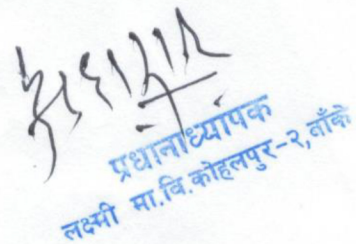 प्रधानाध्यापक
लक्ष्मी मा.वि.कोहलपुर-२, बाँके